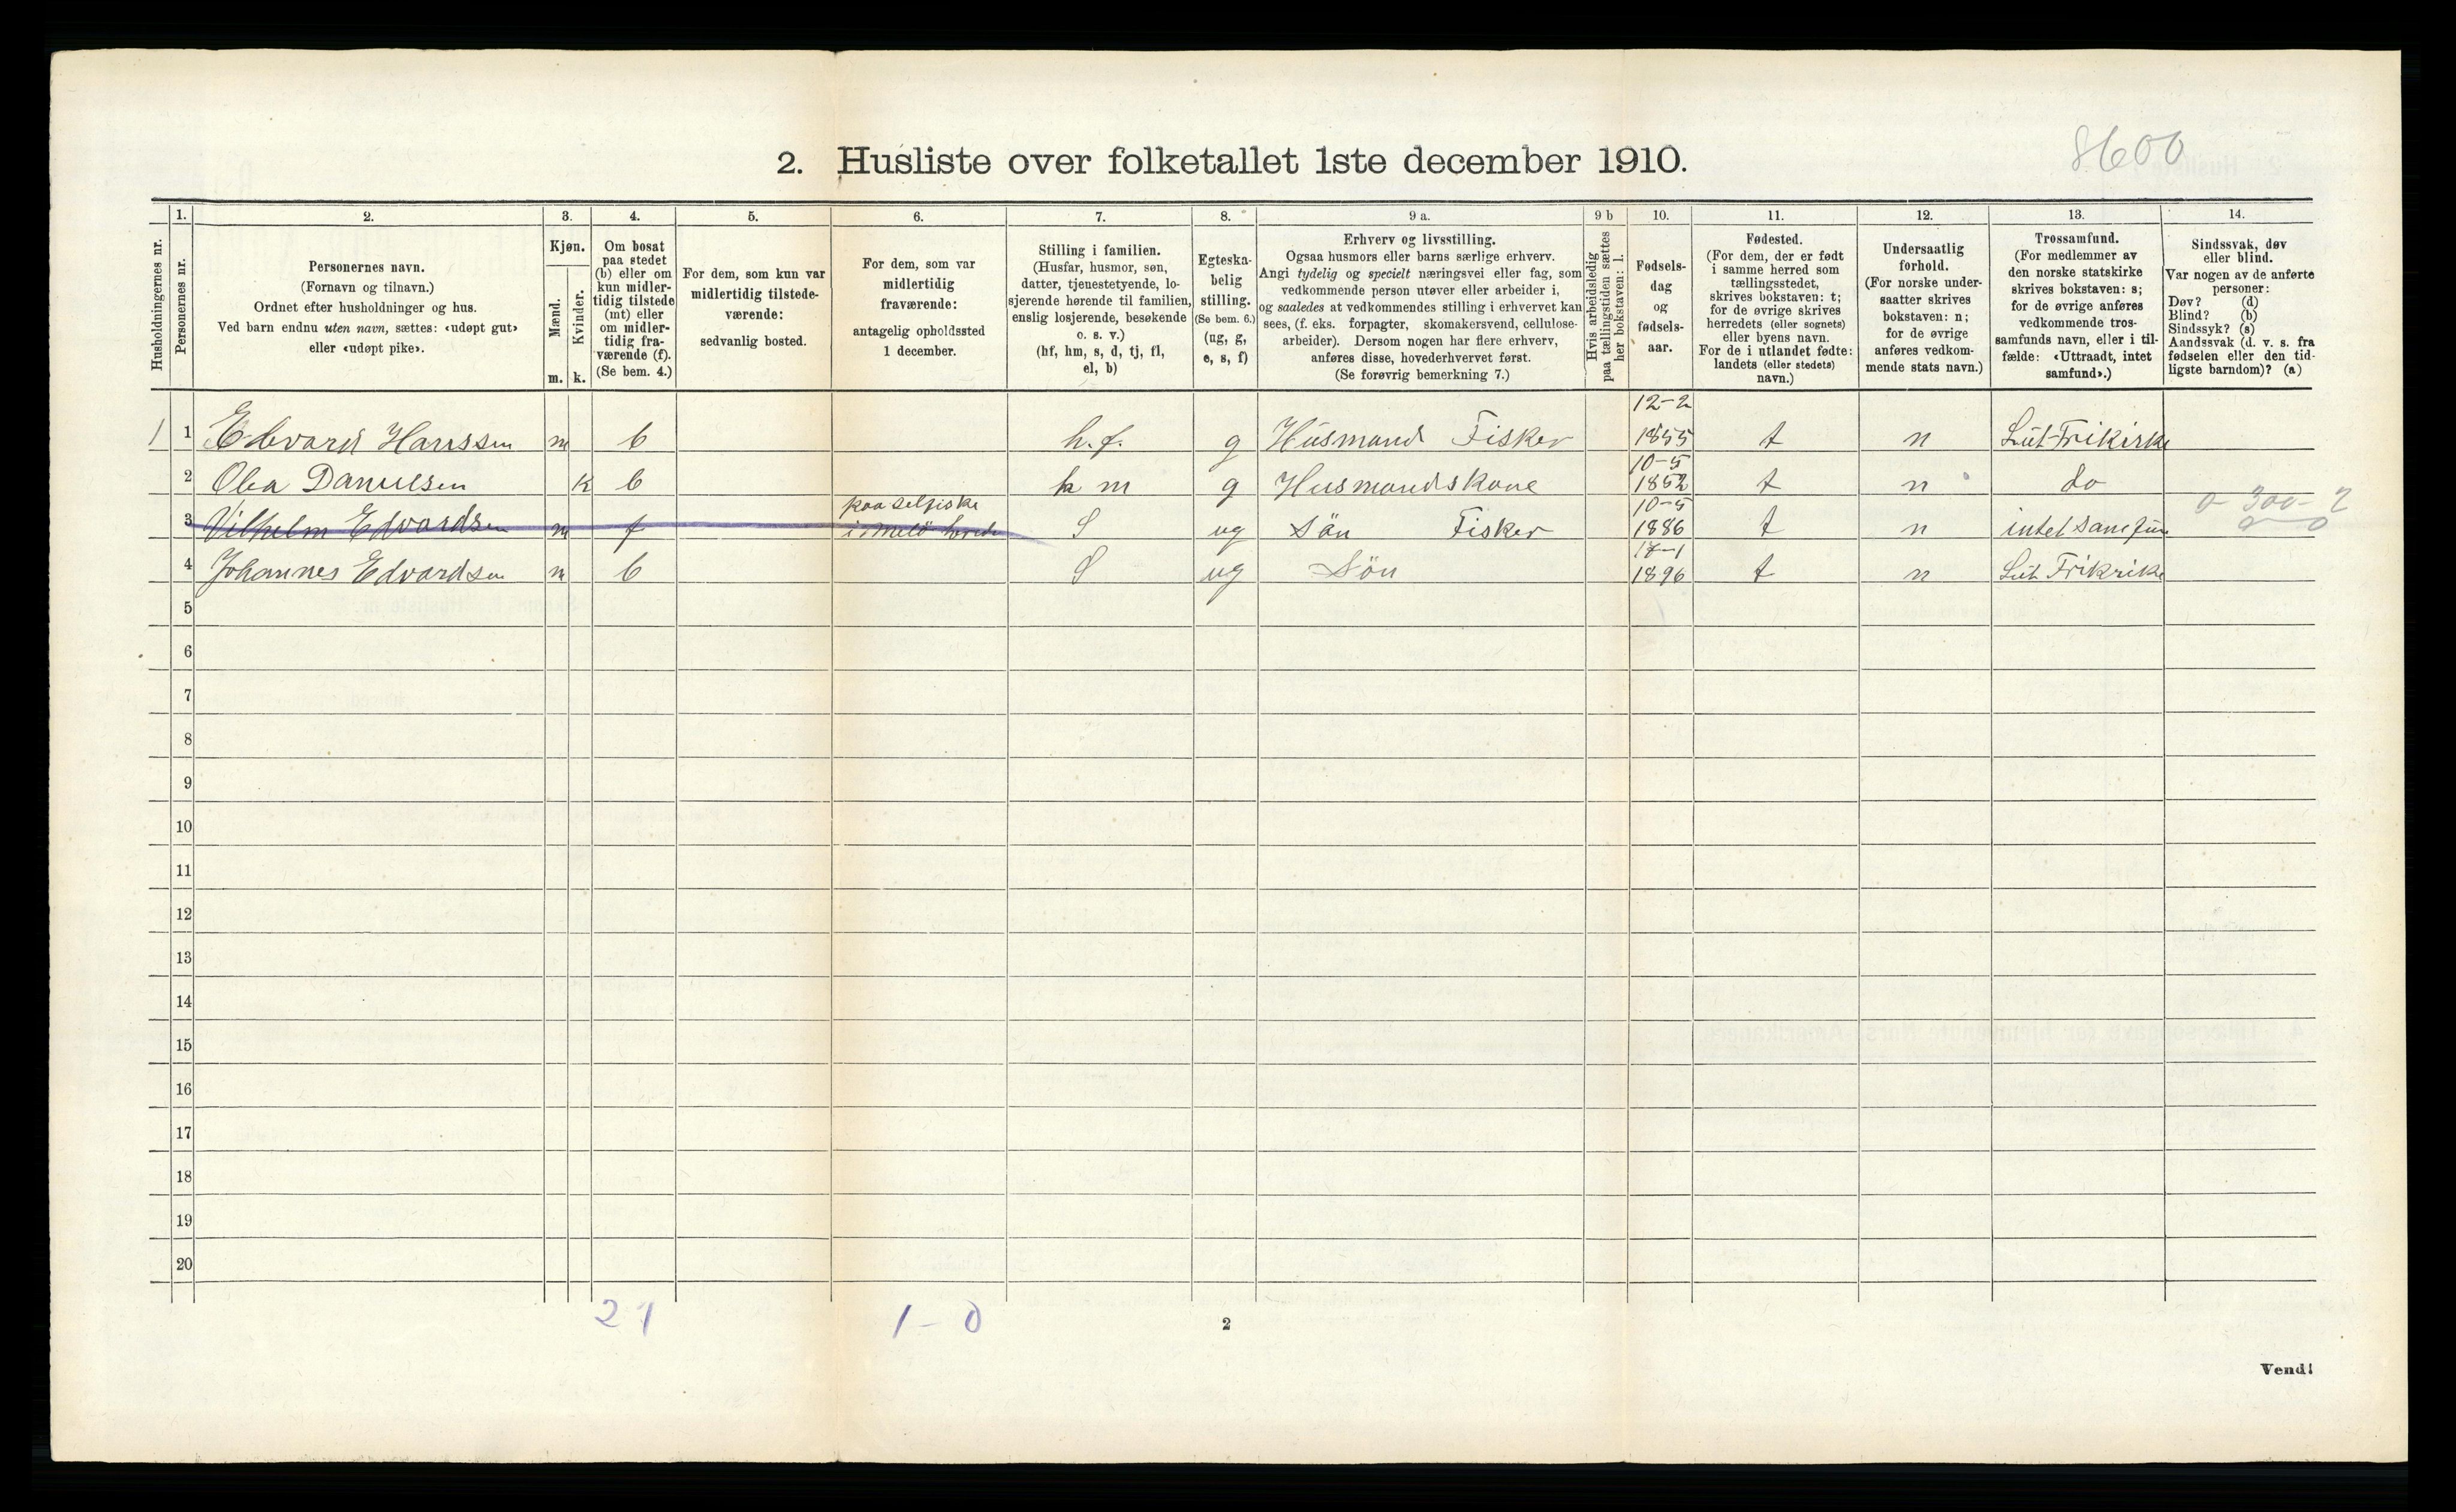 8600
2. Husliste over folketallet 1ste december 1910.
Husholdningernes nr.
1.
Personernes nr.
2.
Personernes navn.
(Fornavn og tilnavn.)
Ordnet efter husholdninger og hus.
Ved barn endnu uten navn, sættes: «udøpt gut»
eller «udøpt pike».
3.
Kjøn.
Mænd.
Kvinder.
m. k.
4.
Om bosat
paa stedet
(b) eller om
kun midler-
tidig tilstede
(mt) eller
om midler-
tidig fra-
værende (f).
(Se bem. 4.)
5.
For dem, som kun var
midlertidig tilstede-
værende:
sedvanlig bosted.
6.
For dem, som var
midlertidig
fraværende:
antagelig opholdssted
1 december.
7.
Stilling i familien.
(Husfar, husmor, søn,
datter, tjenestetyende, lo-
sjerende hørende til familien,
enslig losjerende, besøkende
o. s. v.)
(hf, hm, s, d, tj, fl,
el, b)
8.
Egteska-
belig
stilling.
(Se bem. 6.)
(ug, g,
e, s, f)
9 a.
Erhverv og livsstilling.
Ogsaa husmors eller barns særlige erhverv.
Angi tydelig og specielt næringsvei eller fag, som
vedkommende person utøver eller arbeider i,
og saaledes at vedkommendes stilling i erhvervet kan
sees, (f. eks. forpagter, skomakersvend, cellulose-
arbeider). Dersom nogen har flere erhverv,
anføres disse, hovederhvervet først.
(Se forøvrig bemerkning 7.)
9 b
Hvis arbeidsledig
paa tællingstiden sættes
her bokstaven: l.
10.
Fødsels-
dag
og
fødsels-
aar.
11.
Fødested.
(For dem, der er født
i samme herred som
tællingsstedet,
skrives bokstaven: t;
for de øvrige skrives
herredets (eller sognets)
eller byens navn.
For de i utlandet fødte:
landets (eller stedets)
navn.)
12.
Undersaatlig
forhold.
(For norske under-
saatter skrives
bokstaven: n;
for de øvrige
anføres vedkom-
mende stats navn.)
13.
Trossamfund.
(For medlemmer av
den norske statskirke
skrives bokstaven: s;
for de øvrige anføres
vedkommende tros-
samfunds navn, eller i til-
fælde: «Uttraadt, intet
samfund».)
14.
Sindssvak, døv
eller blind.
Var nogen av de anførte
personer:
Døv? (d)
Blind? (b)
Sindssyk? (s)
Aandssvak (d. v. s. fra
fødselen eller den tid-
ligste barndom)? (a)
1 1 Edvard Hanssen m b h.f. g Húsmand Fisker 12-2 1855 t n Lút Frikirke
2 Olea Danielsen k b h m g Husmandskone 10-5 1852 t n do
3 Vilhelm Edvardsen m f paa selfiske i Melö herred S ug Sön Fisker 10-5 1886 t n intet samfún 0-300-2
0 0
4 Johannes Edvardsen m b S ug Sön 17-1 1896 t n Lút Frikrike
5
6
7
8
9
10
11
12
13
14
15
16
17
18
19
20
2 1 1-0
2
Vend!